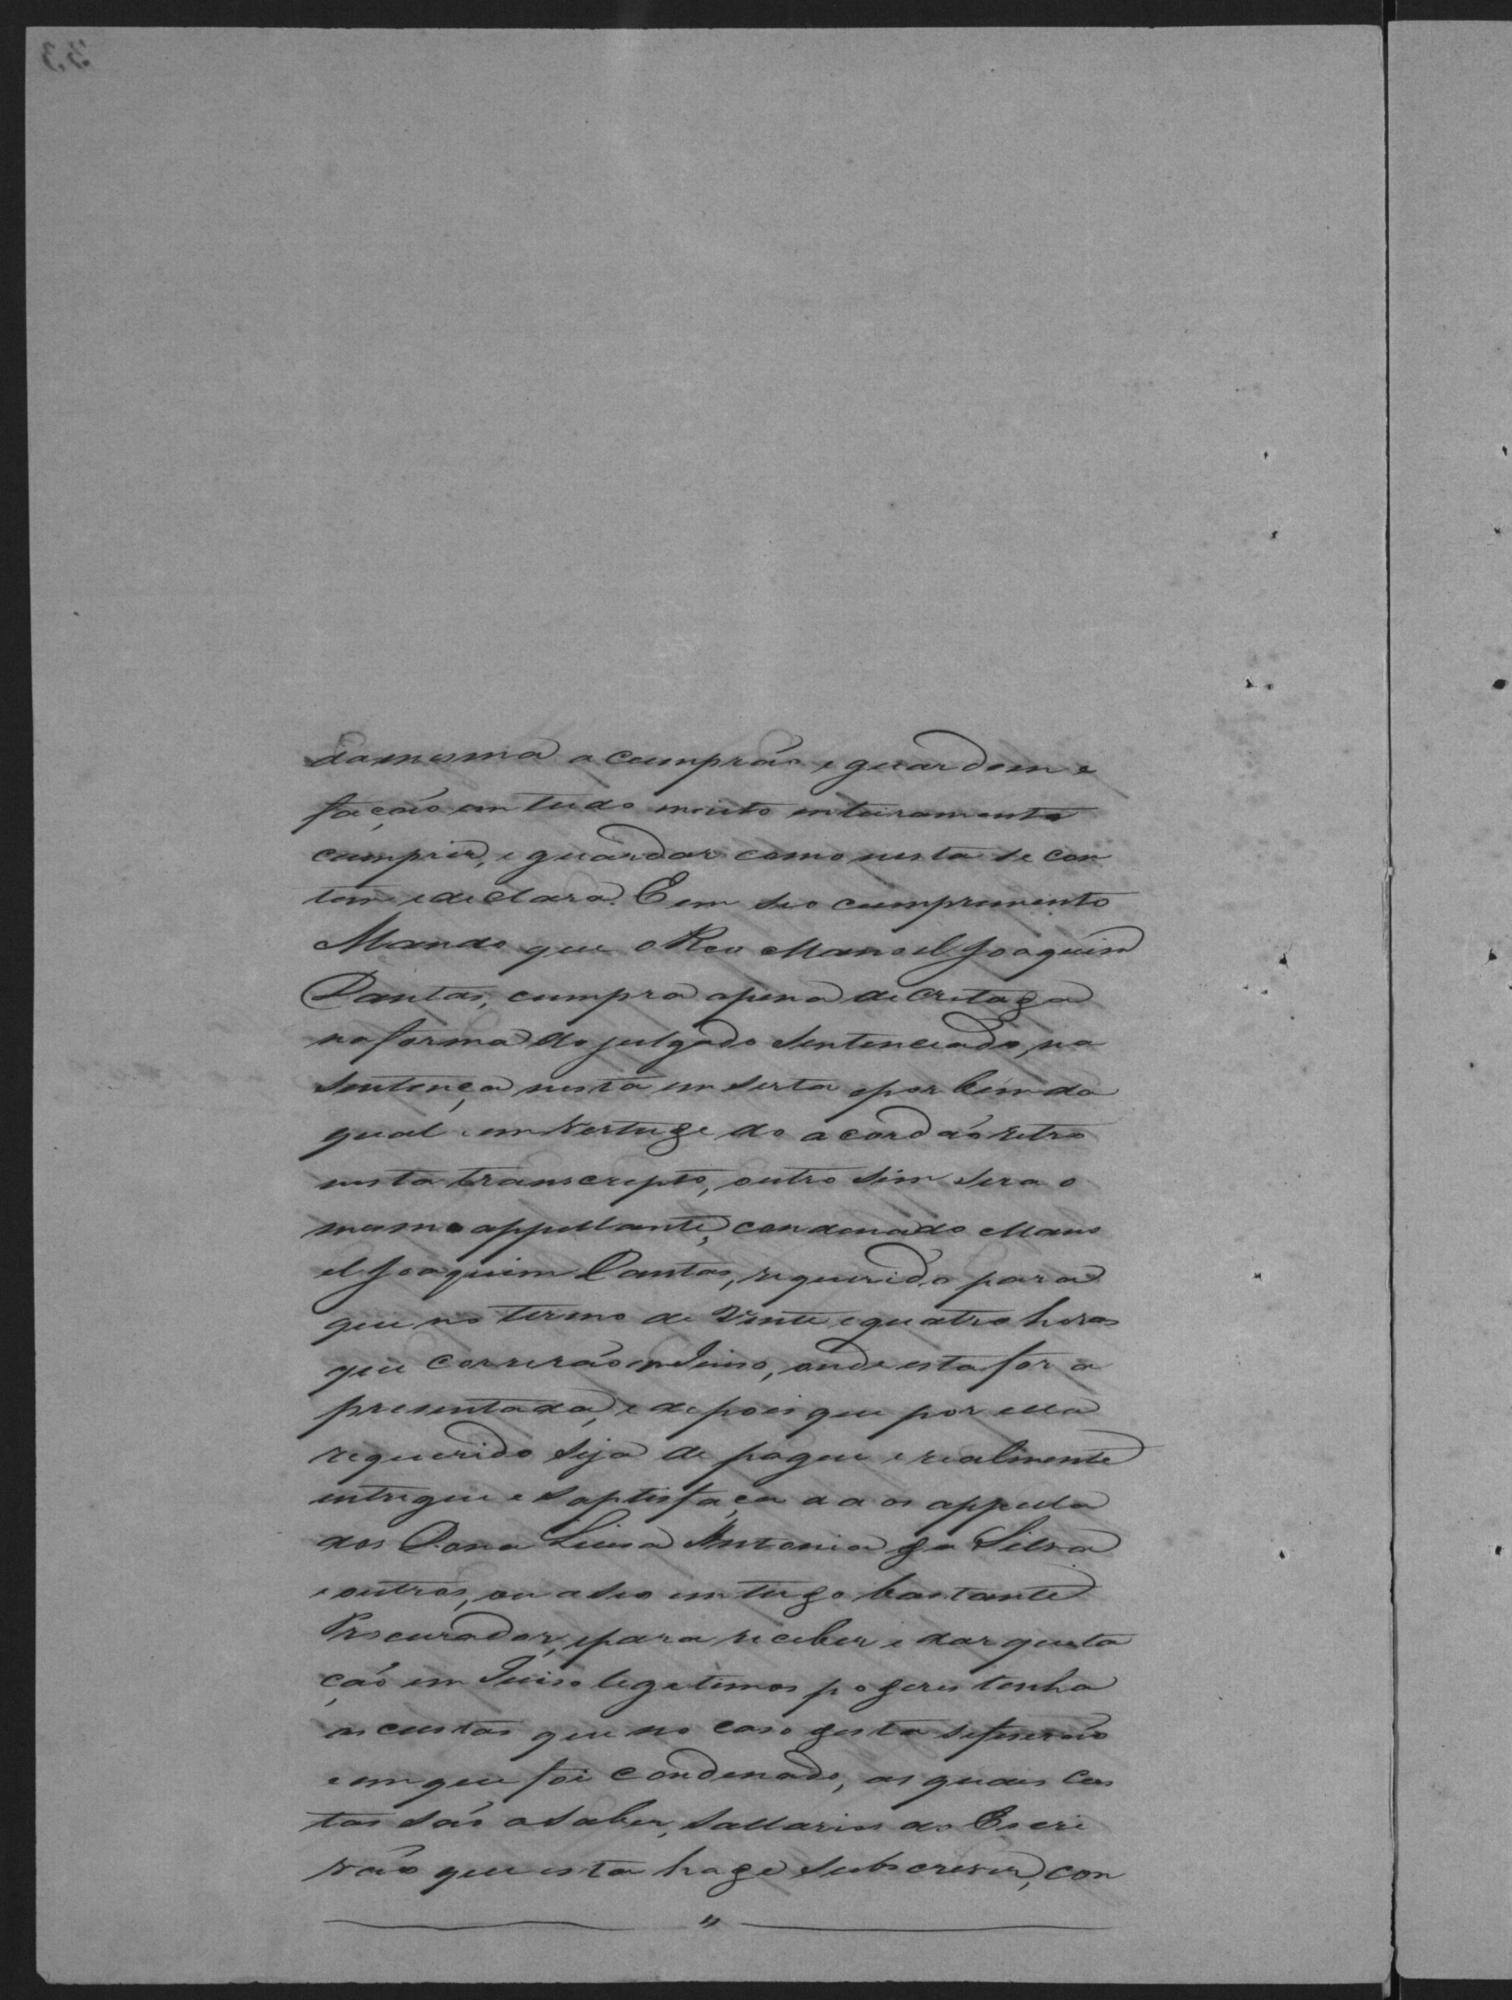 33
damesma a cumprão e guardem e
façaõ em tudo muito enteiramente
cumprir, e guardar como nesta se con
tem e declara. E em seo cumprimento
Mando que o Reu Manoel Joaquim
Dantas, cumpra apena decretaga
na forma do julgado Sentenciado, na
Sentença nesta emserta epor bem da
qual e em vertuge do acordaõ retro
nesta transcripto, outro sim sera o
mesmo appellante, condenado Mano
el Joaquim Dantas, requerido para
que no termo de vente e quatro horas
que correrão em Juiso, onde esta for a
presentada, e depois que por ella
requerido seja de pague e realmente
entregue e saptisfaça a aos appella
dos Dona Luisa Antonia ga Silva
e outros, ou aseo em tugo bastante
Procurador, epara receber e dar queta
ção em Juiso legetimos pogeres tenha
as custas que no caso gesta sefiserão
e em que foi condenado, as quaes cus
tas são asaber, sallarios do Escri
vão que esta hage subscrever, con
〃